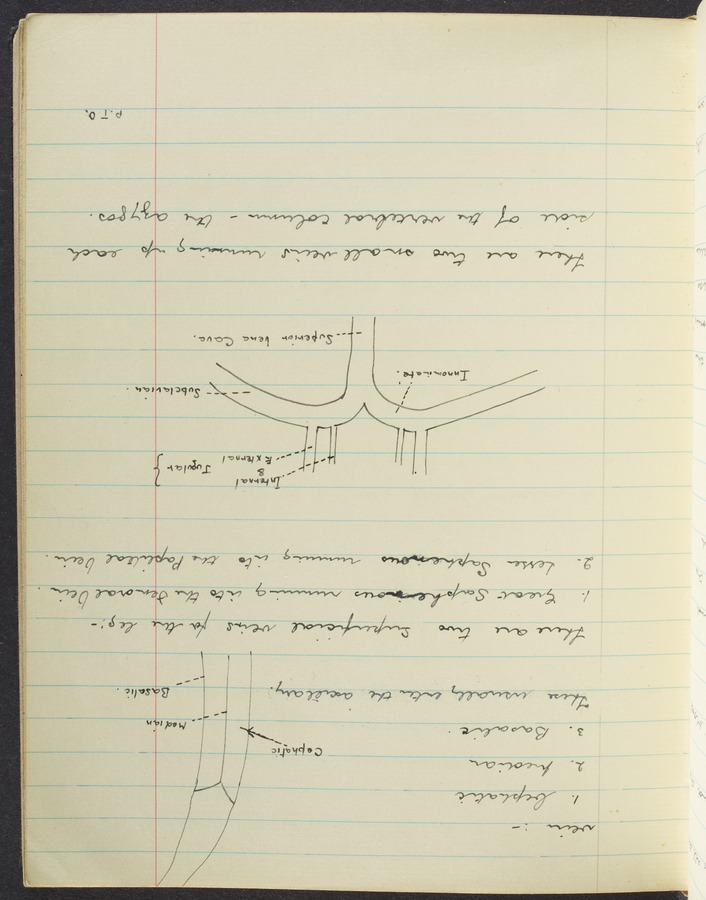 vein :-
1. Cephalic
2. Median
3. Basalic.
These usually enter the axillary.
Cephalic
Median
Basalic.
There are two superficial veins for the leg:-
1. Great Saphenous running into the Femoral Vein.
2. Lesser Saphenous running into the Popliteal Vein.
Internal
&
External
} Jugular
Subclavian.
Innominate.
Superior Vena Cava.
There are two small veins running up each
side of the vertebral column - the azygos.
P.T.O.